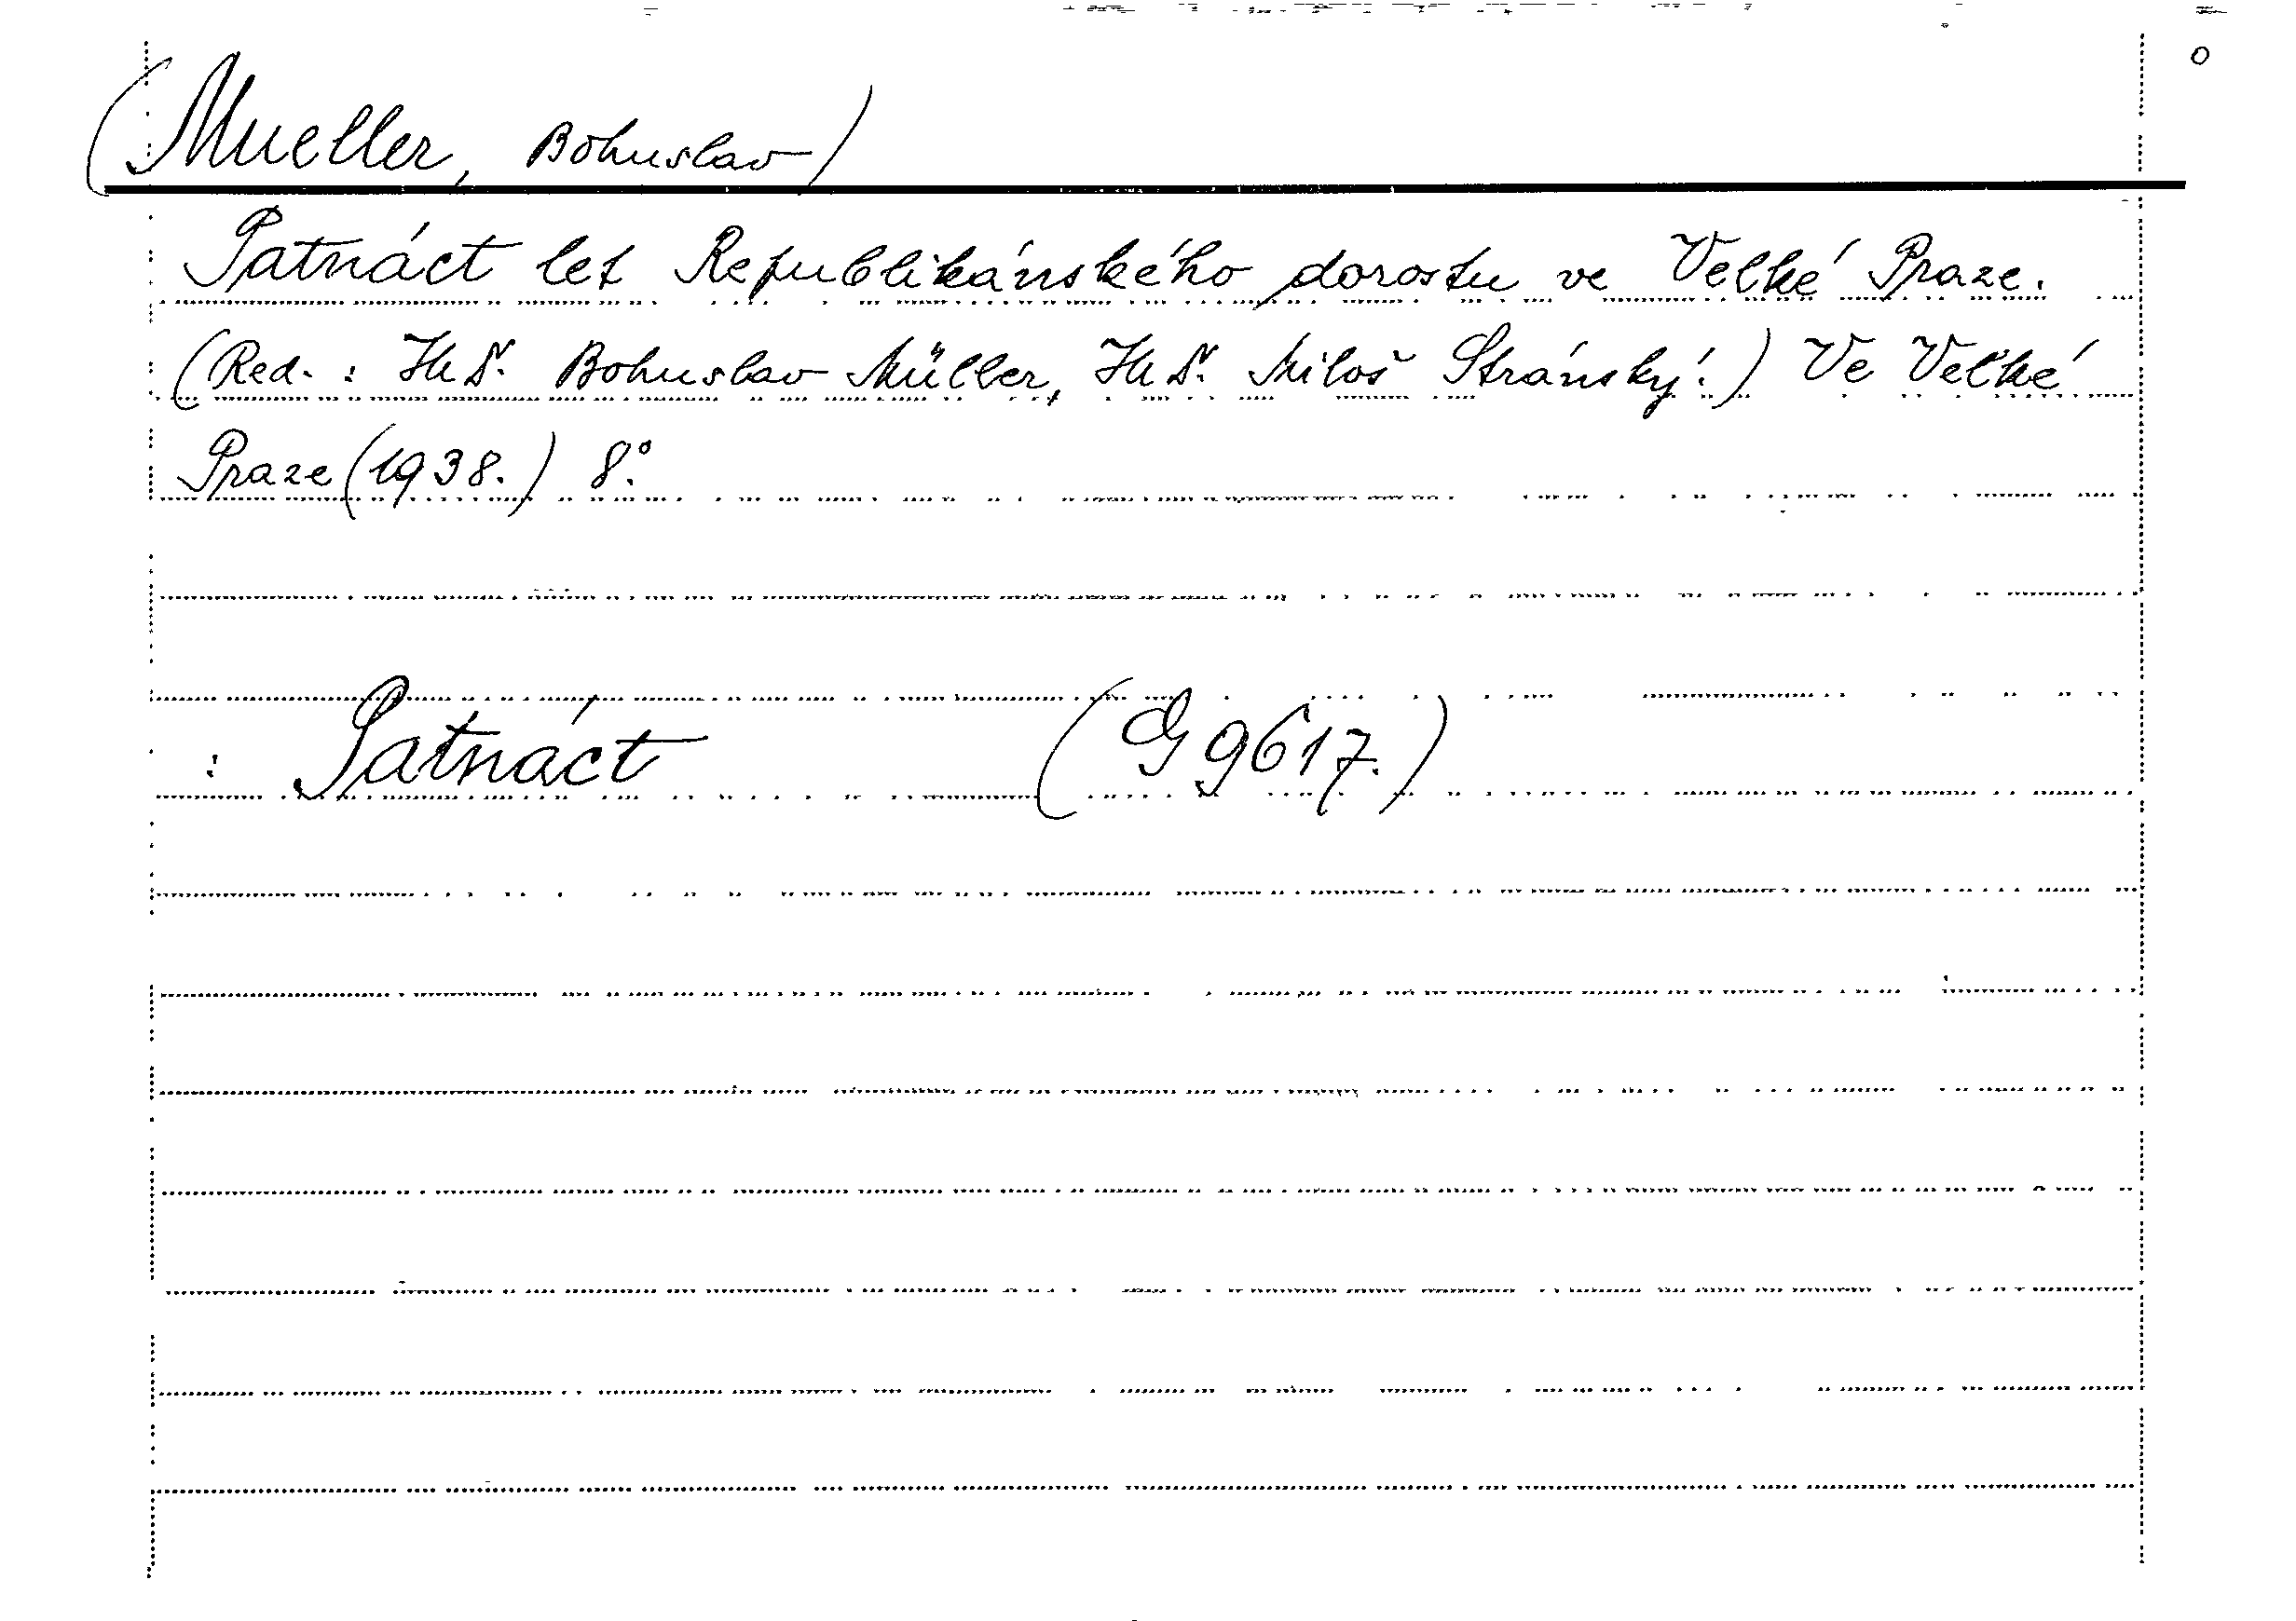 (Mueller, Bohuslav)
Patnáct let Republikánského dorostu ve Velké Praze.
(Red. : JUDr. Bohuslav Müller, JUDr. Miloš Stránský.) Ve Velké
Praze (1938.) 8°.
: Patnáct (G 9617.)